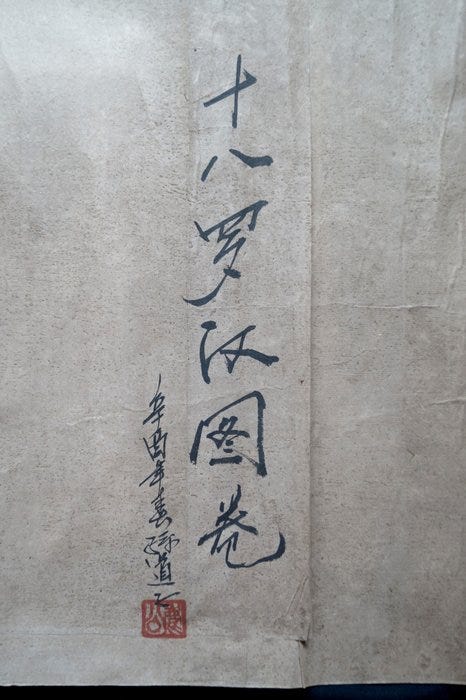 十八罗汉图卷
辛酉年春